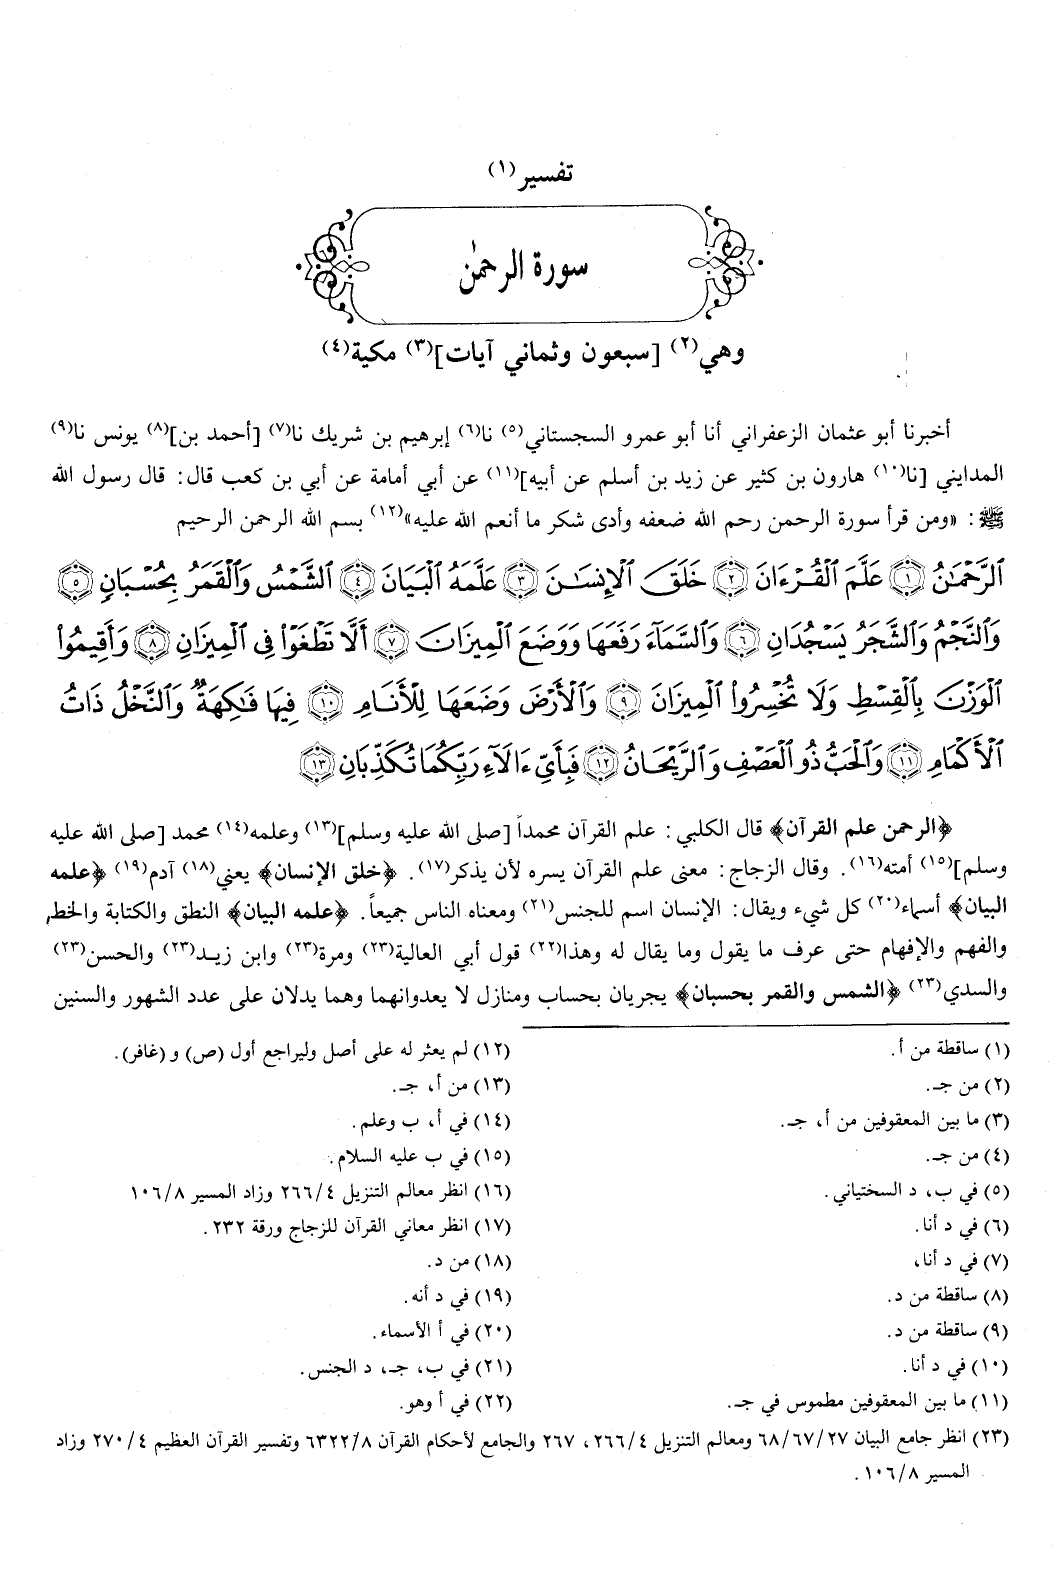 تفسير(١)
سورة الرحمٰن
وهي(٢) [سبعون وثماني آيات](٣) مكية(٤)
أخبرنا أبو عثمان الزعفراني أنا أبو عمرو السجستاني(٥) نا(٦) إبرهيم بن شريك نا(٧) [أحمد بن](٨) يونس نا(٩)
المدايني [نا(١٠) هارون بن كثير عن زيد بن أسلم عن أبيه](١١) عن أبي أمامة عن أبي بن كعب قال: قال رسول الله
ﷺ: «ومن قرأ سورة الرحمن رحم الله ضعفه وأدى شكر ما أنعم الله عليه»(١٢) بسم الله الرحمن الرحيم
ٱلرَّحْمَٰنُ ١ عَلَّمَ ٱلْقُرْءَانَ ٢ خَلَقَ ٱلْإِنسَٰنَ ٣ عَلَّمَهُ ٱلْبَيَانَ ٤ ٱلشَّمْسُ وَٱلْقَمَرُ بِحُسْبَانٍ ٥
وَٱلنَّجْمُ وَٱلشَّجَرُ يَسْجُدَانِ ٦ وَٱلسَّمَآءَ رَفَعَهَا وَوَضَعَ ٱلْمِيزَانَ ٧ أَلَّا تَطْغَوْا۟ فِى ٱلْمِيزَانِ ٨ وَأَقِيمُوا۟
ٱلْوَزْنَ بِٱلْقِسْطِ وَلَا تُخْسِرُوا۟ ٱلْمِيزَانَ ٩ وَٱلْأَرْضَ وَضَعَهَا لِلْأَنَامِ ١٠ فِيهَا فَٰكِهَةٌ وَٱلنَّخْلُ ذَاتُ
ٱلْأَكْمَامِ ١١ وَٱلْحَبُّ ذُو ٱلْعَصْفِ وَٱلرَّيْحَانُ ١٢ فَبِأَىِّ ءَالَآءِ رَبِّكُمَا تُكَذِّبَانِ ١٣
﴿الرحمن علم القرآن﴾ قال الكلبي: علم القرآن محمداً [صلى الله عليه وسلم](١٣) وعلمه(١٤) محمد [صلى الله عليه
وسلم](١٥) أمته(١٦). وقال الزجاج: معنى علم القرآن يسره لأن يذكر(١٧). ﴿خلق الإنسان﴾ يعني(١٨) آدم(١٩) ﴿علمه
البيان﴾ أسماء(٢٠) كل شيء ويقال: الإنسان اسم للجنس(٢١) ومعناه الناس جميعاً. ﴿علمه البيان﴾ النطق والكتابة والخط
والفهم والإفهام حتى عرف ما يقول وما يقال له وهذا(٢٢) قول أبي العالية(٢٣) ومرة(٢٣) وابن زيد(٢٣) والحسن(٢٣)
والسدي(٢٣) ﴿الشمس والقمر بحسبان﴾ يجريان بحساب ومنازل لا يعدوانهما وهما يدلان على عدد الشهور والسنين
(١) ساقطة من أ.
(٢) من جـ.
(٣) ما بين المعقوفين من أ، جـ.
(٤) من جـ.
(٥) في ب، د السختياني.
(٦) في د أنا.
(٧) في د أنا،
(٨) ساقطة من د.
(٩) ساقطة من د.
(١٠) في د أنا.
(١١) ما بين المعقوفين مطموس في جـ.
(١٢) لم يعثر له على أصل وليراجع أول (ص) و (غافر).
(١٣) من أ، جـ.
(١٤) في أ، ب وعلم.
(١٥) في ب عليه السلام.
(١٦) انظر معالم التنزيل ٢٦٦/٤ وزاد المسير ١٠٦/٨
(١٧) انظر معاني القرآن للزجاج ورقة ٢٣٢.
(١٨) من د.
(١٩) في د أنه.
(٢٠) في أ الأسماء.
(٢١) في ب، جـ، د الجنس.
(٢٢) في أ وهو.
(٢٣) انظر جامع البيان ٦٨/٦٧/٢٧ ومعالم التنزيل ٢٦٦/٤، ٢٦٧ والجامع لأحكام القرآن ٦٣٢٢/٨ وتفسير القرآن العظيم ٢٧٠/٤ وزاد
المسير ١٠٦/٨.